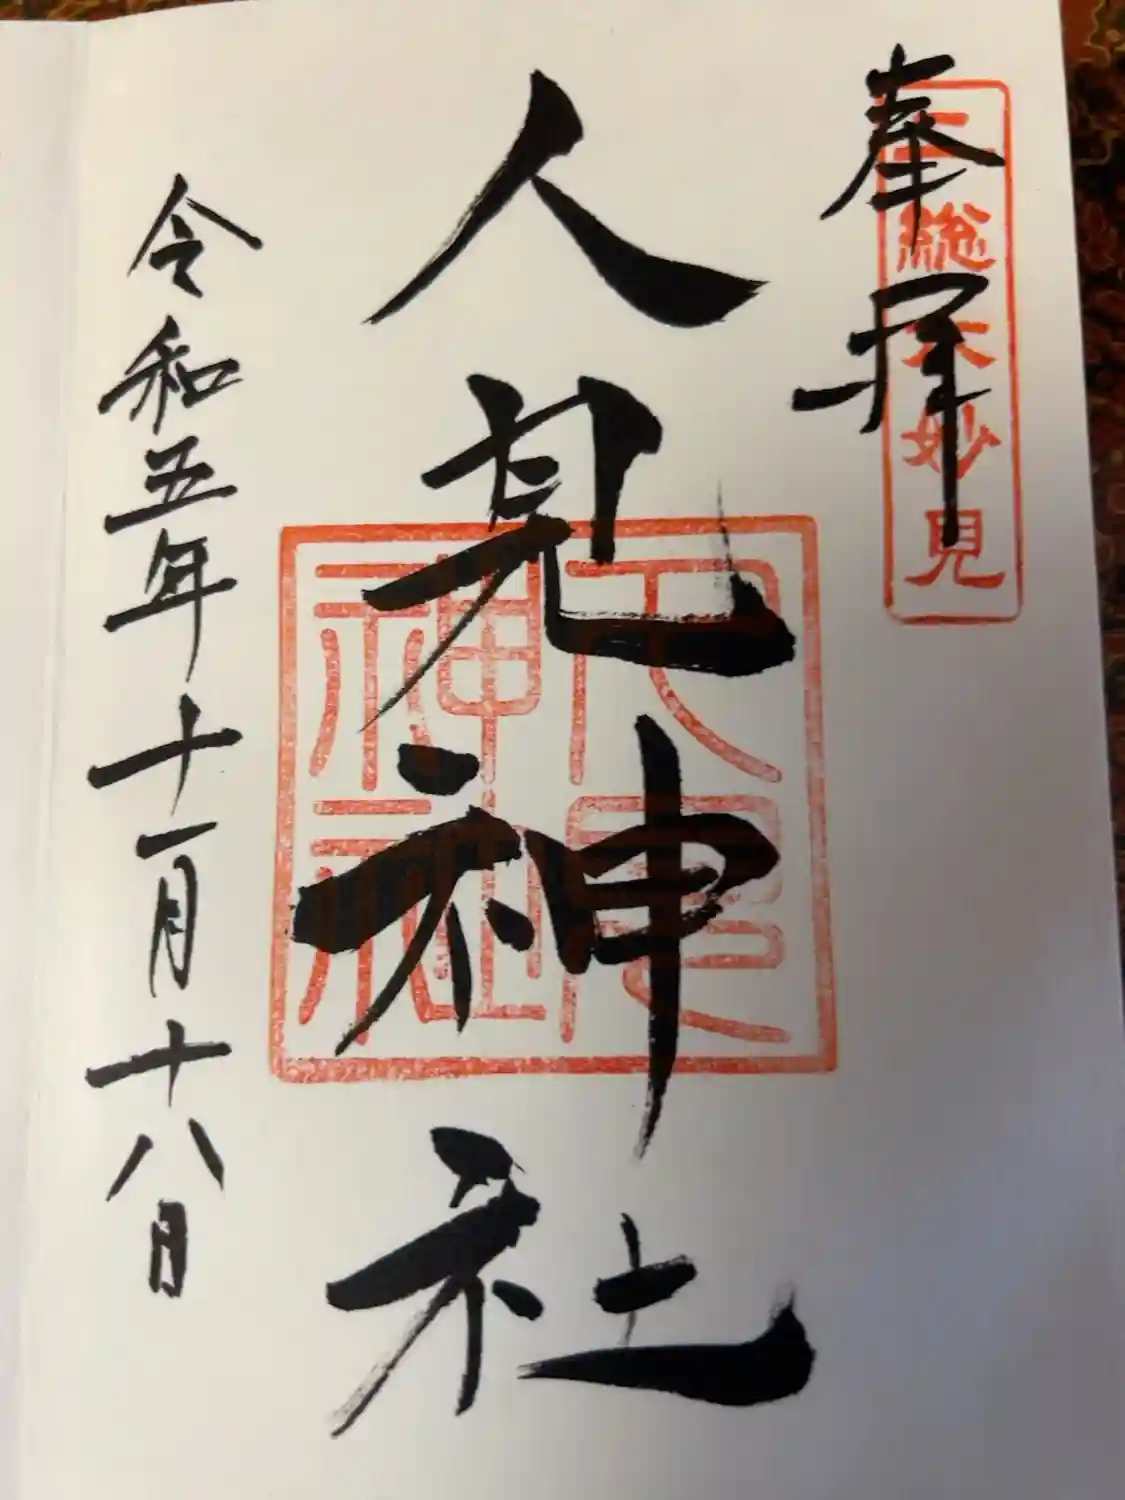 奉拝
三総大妙見
人見神社
人見神社
令和五年十一月十八日